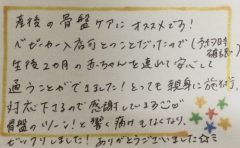 産後の骨盤ケアにオススメです!
ベビーカー入店可とのことだったので(予約時
生後2カ月の赤ちゃんを連れて安心して
通うことができました!とっても親身に施術、
対応下さるので感謝しています
骨盤のツーン!と響く痛みもなくなり、
ビックリしました!ありがとうございました